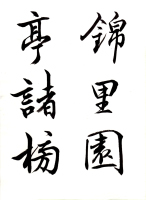 錦里園
亭諸榜